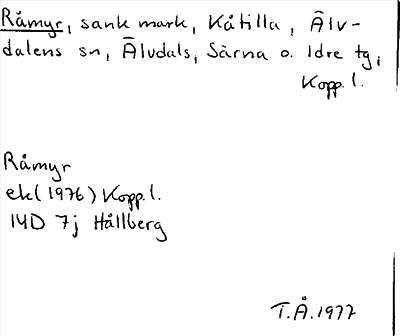 Råmyr, sank mark, Kåtilla, Älv-
dalens sn, Älvdals, Särna o. Idre tg,
Kopp. l.
Råmyr
ek (1976) Kopp. l.
14D 7j Hållberg
T.Å. 1977